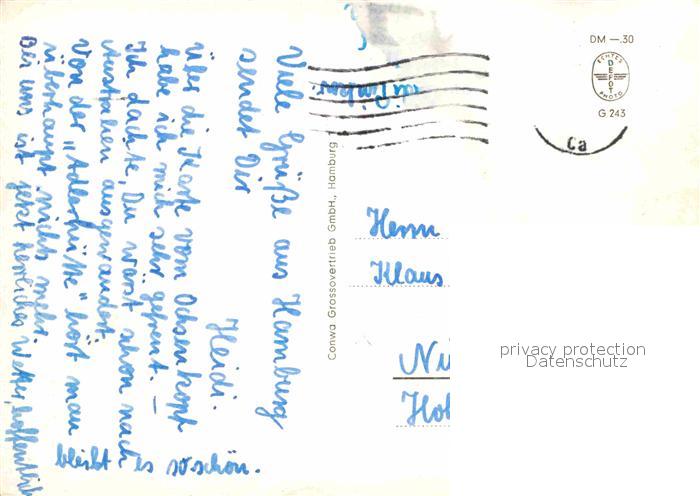 Viele Grüße aus Hamburg
sendet Dir
Heidi.
Über die Karte vom Ochsenkopf
habe ich mich sehr gefreut. –
Ich dachte, Du wärst schon nach
Australien ausgewandert.
Von der "Adlerhütte" hört man
überhaupt nichts mehr.
Bei uns ist jetzt herrliches Wetter, hoffentlich
bleibt es so schön.
Conwa Grossovertrieb GmbH., Hamburg
DM —.30
ECHTES
DEFOT
PHOTO
G 243
Ca
Herrn
Klaus
privacy protection
Datenschutz